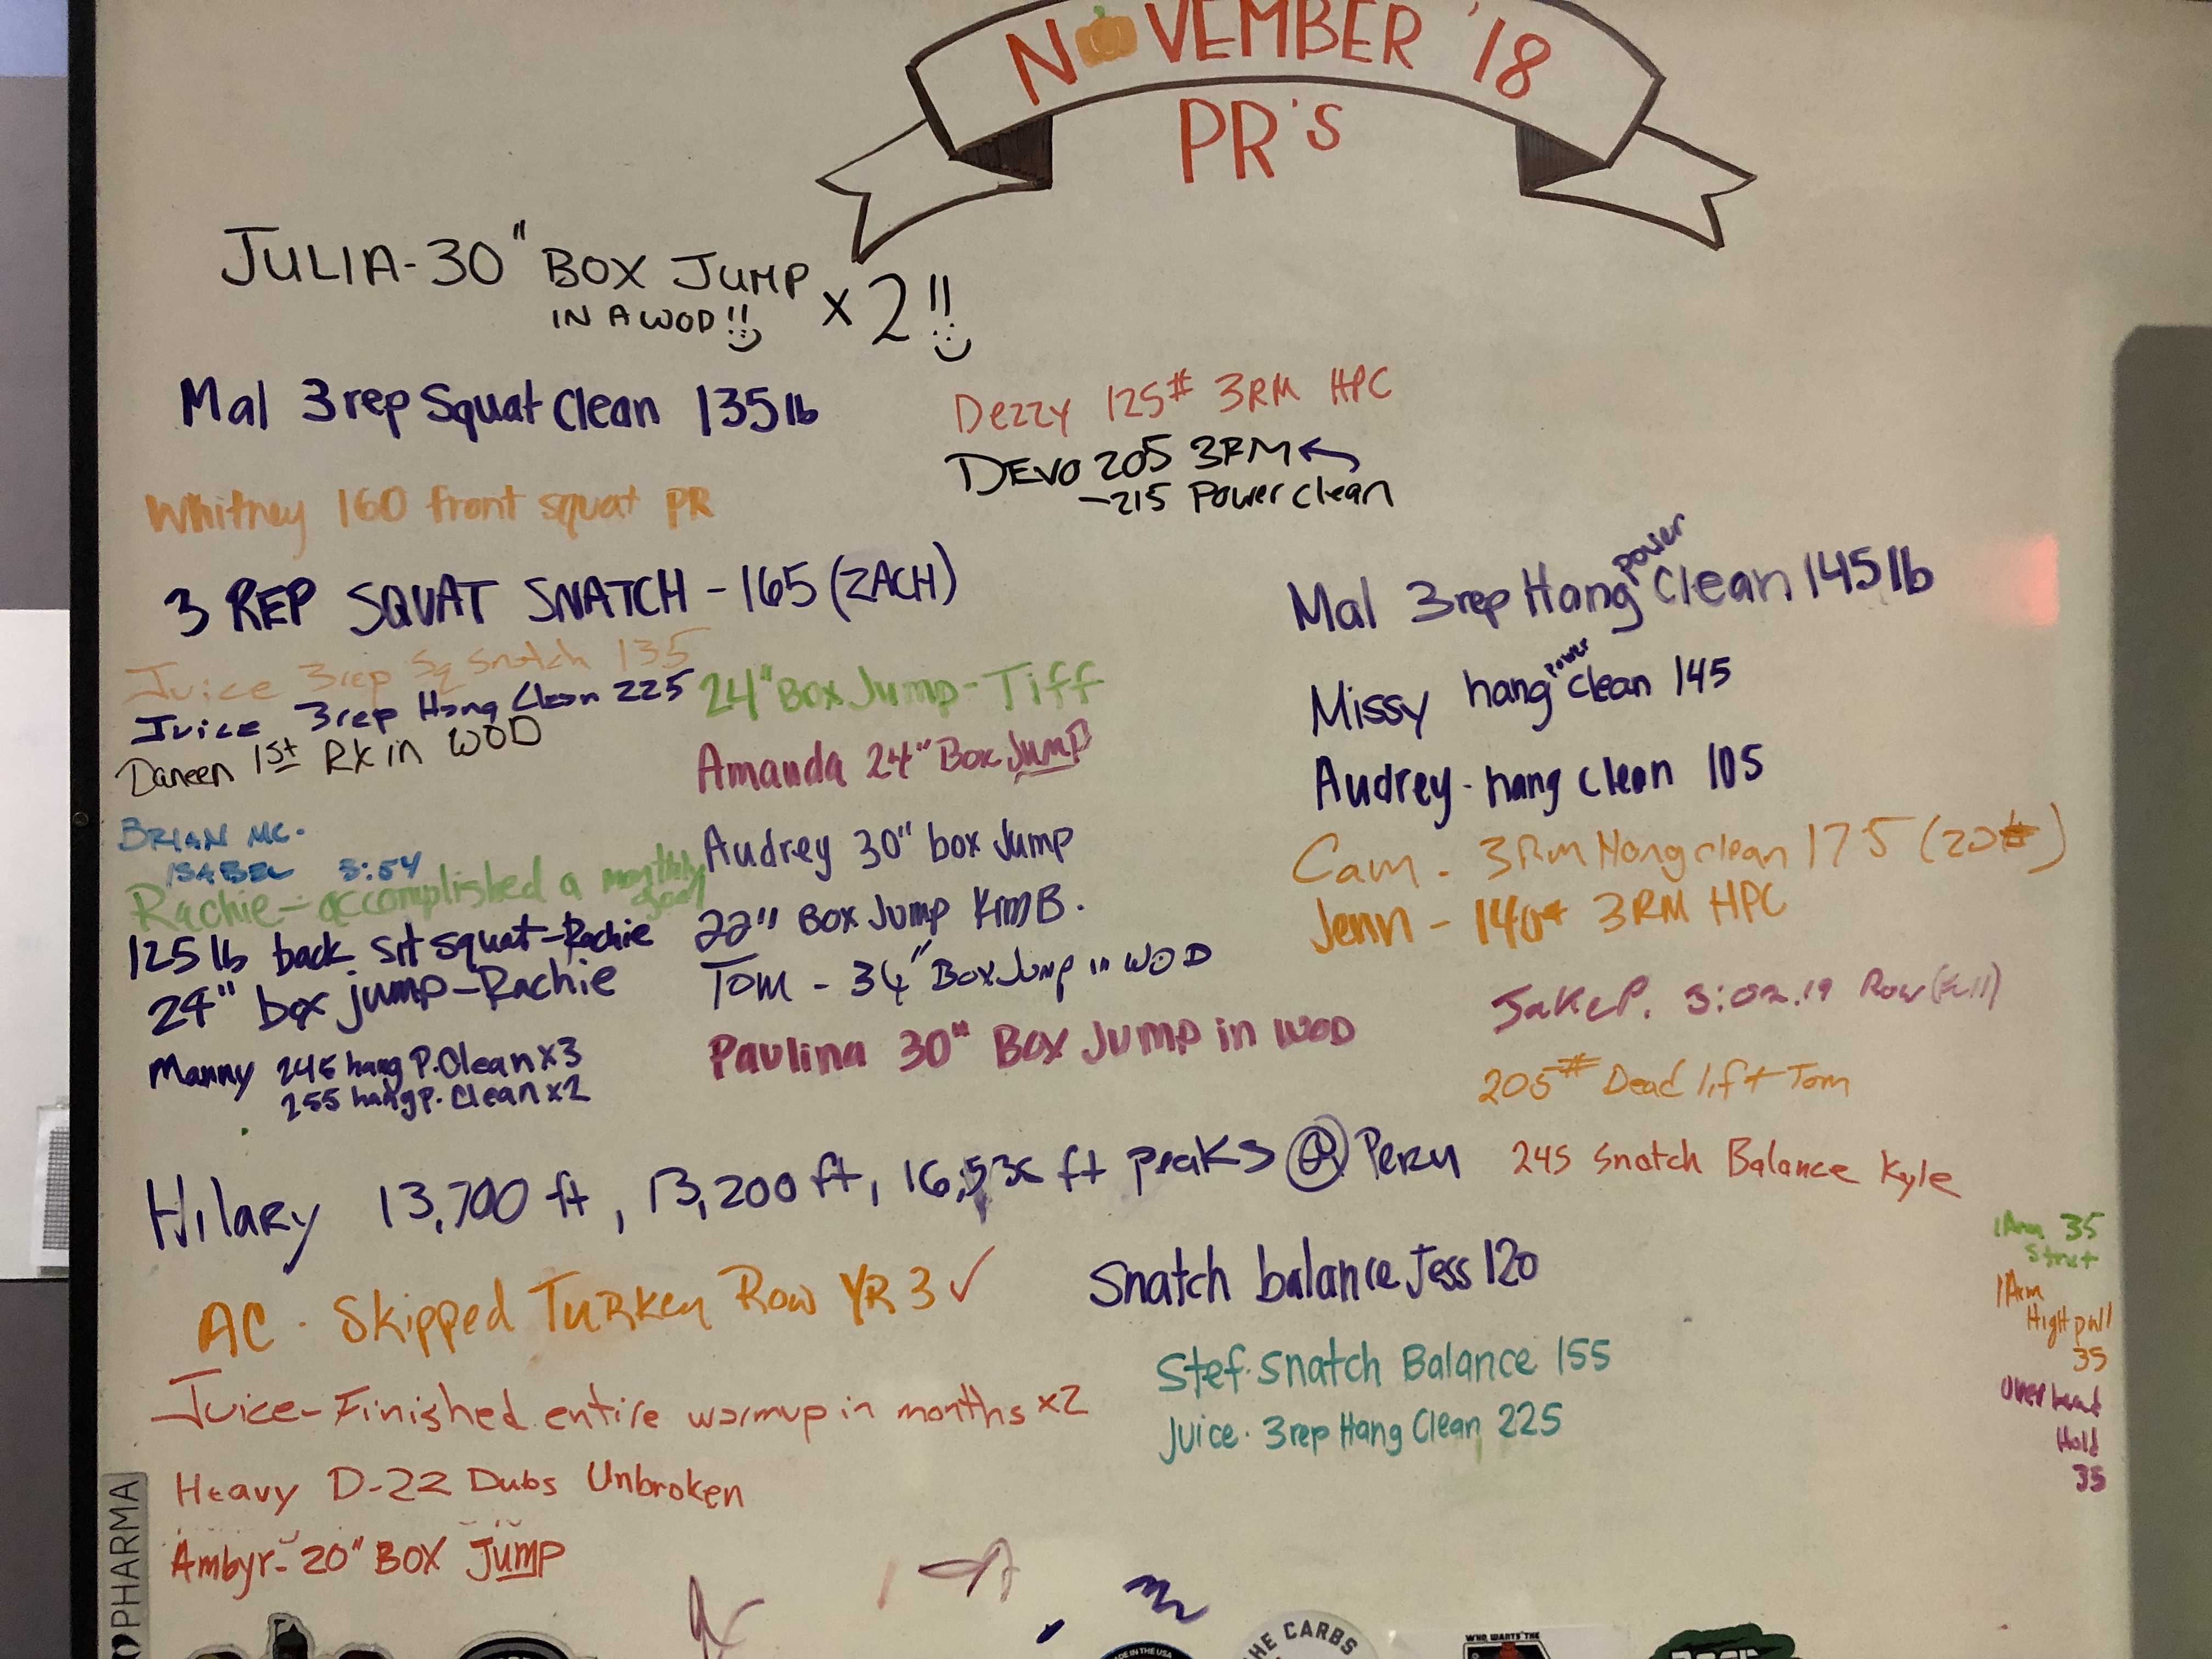 NOVEMBER '18
PR'S
JULIA-30" BOX JUMP x2!!
IN A WOD!!
Mal 3rep Squat Clean 135lb
Dezzy 125# 3RM HPC
DEVO 205 3RM
-215 Power clean
Whitney 160 front squat PR
3 REP SQUAT SNATCH - 165 (ZACH)
Juice 3rep Sq Snatch 135
Juice 3rep Hang Clean 225
Daneen 1st RX in WOD
BRIAN MC.
ISABEL 3:54
Rachie - accomplished a monthly goal
125lb back squat-Rachie
24" box jump-Rachie
Manny 245 hang P. Clean x3
255 hang p. Clean x2
24" Box Jump - Tiff
Amanda 24" Box Jump
Audrey 30" box Jump
22" Box Jump Kim B.
Tom - 34" Box Jump in WOD
Paulina 30" Box Jump in WOD
Mal 3rep Hang power Clean 145lb
Missy hang power clean 145
Audrey - hang clean 105
Cam - 3RM Hang clean 175 (20#)
Jenn - 140# 3RM HPC
Jake P. 3:02.19 Row
205# Dead lift Tom
245 Snatch Balance Kyle
Hilary 13,700 ft, 13,200 ft, ft peaks @ Peru
AC - Skipped Turkey Row YR 3 ✓
Snatch balance Jess 120
Stef. Snatch Balance 155
Juice. 3rep Hang Clean 225
Juice-Finished entire warmup in months x2
Heavy D-22 Dubs Unbroken
Ambyr- 20" BOX Jump
1 Arm 35
1 Arm
High pull
35
Overhead
Hold
35
PHARMA
HE CARBS
MADE IN THE USA
WHO WANTS THE